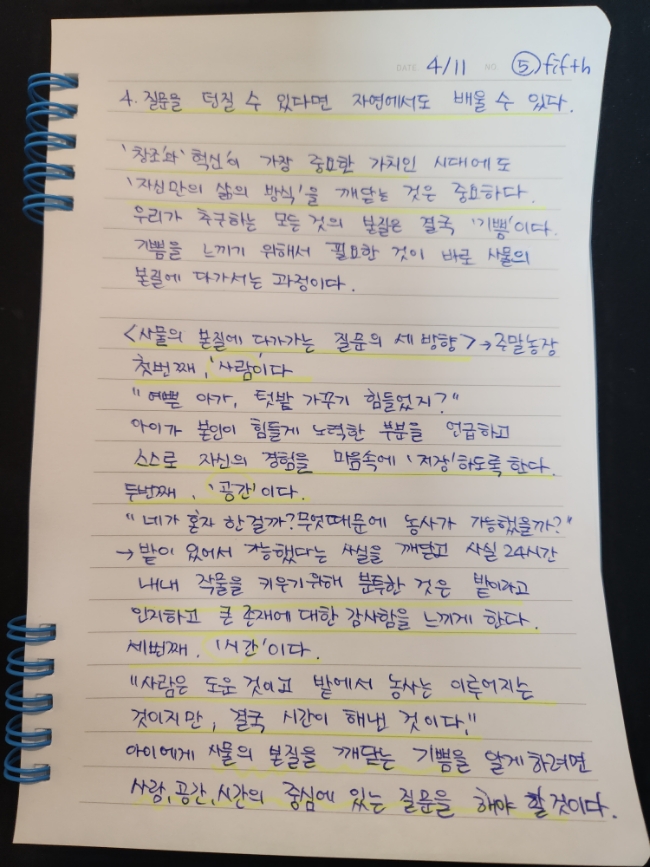 DATE 4/11 NO ⑤)fifth
4. 질문을 던질 수 있다면 자연에서도 배울 수 있다.
'창조'과 '혁신'이 가장 중요한 가치인 시대에도
'자신만의 삶의 방식'을 깨닫는 것은 중요하다.
우리가 추구하는 모든 것의 본질은 결국 '기쁨'이다.
기쁨을 느끼기 위해서 필요한 것이 바로 사물의
본질에 다가서는 과정이다.
<사물의 본질에 다가가는 질문의 세 방향> → 주말농장
첫번째, '사람'이다
"예쁜 아가, 텃밭 가꾸기 힘들었지?"
아이가 본인이 힘들게 노력한 부분을 언급하고
스스로 자신의 경험을 마음속에 '저장'하도록 한다.
두번째, '공간'이다.
"네가 혼자 한걸까? 무엇때문에 농사가 가능했을까?"
→ 밭이 있어서 가능했다는 사실을 깨닫고 사실 24시간
내내 작물을 키우기위해 분투한 것은 밭이라고
인지하고 큰 존재에 대한 감사함을 느끼게 한다.
세번째, '시간'이다.
"사람은 도운 것이고 밭에서 농사는 이루어지는
것이지만, 결국 시간이 해낸 것이다."
아이에게 사물의 본질을 깨닫는 기쁨을 알게하려면
사랑, 공간, 시간의 중심에 있는 질문을 해야 할 것이다.